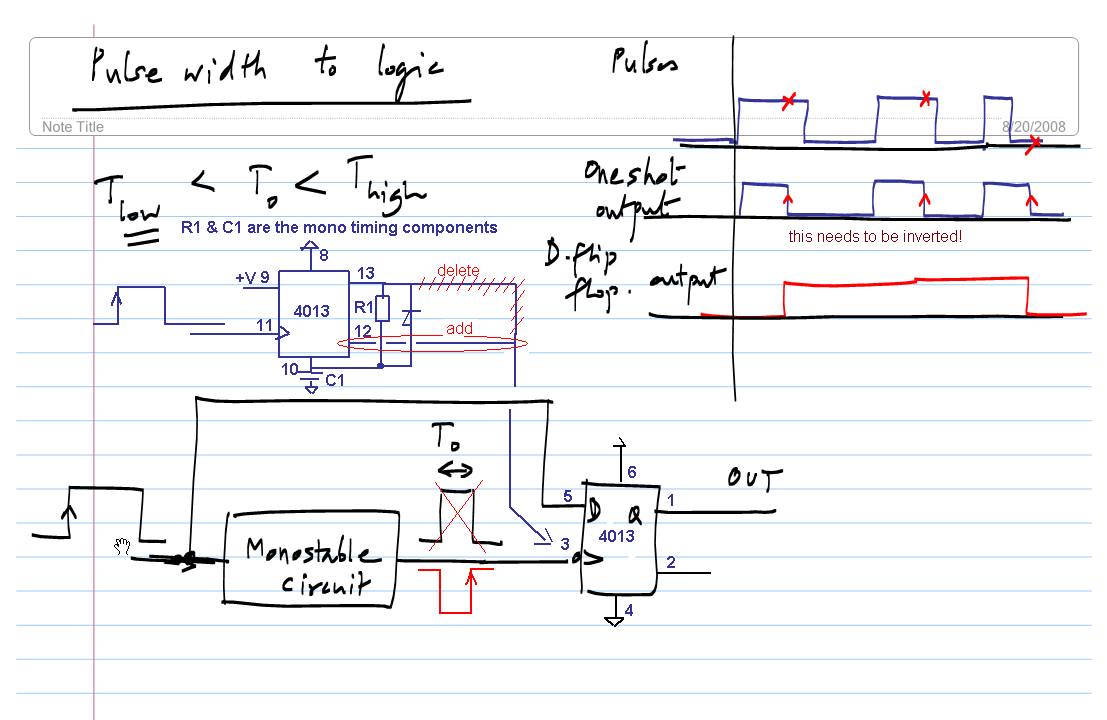 Pulse width to logic
Pulses
Note Title
8/20/2008
Tlow < To < Thigh
Oneshot
output
R1 & C1 are the mono timing components
this needs to be inverted!
D.flip
flop. output
8
+V 9
13
delete
4013
R1
11
12
add
10
C1
To
6
OUT
5
1
D Q
4013
3
2
Monostable
circuit
4